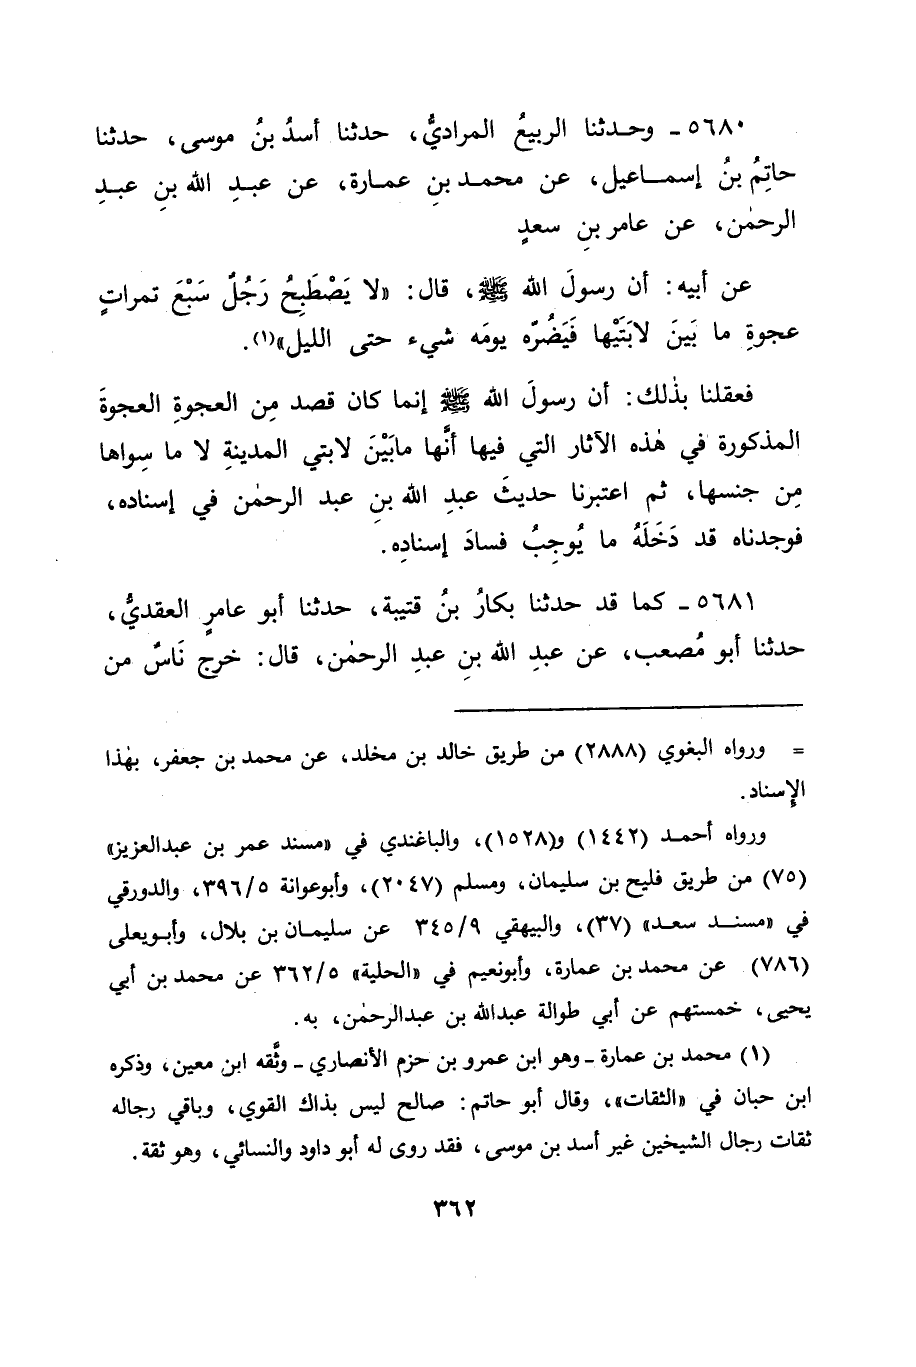 ٥٦٨٠ ـ وحـدثنا الربيعُ المراديُّ، حدثنا أسدُ بنُ موسى، حدثنا
حاتِمُ بنُ إسمـاعيل، عن محمـد بنِ عمـارة، عن عبـدِ الله بنِ عبـدِ
الرحمٰن، عن عامر بنِ سعدٍ
عن أبيه: أن رسولَ الله ﷺ، قال: «لا يَصْطَبِحُ رَجُلٌ سَبْعَ تمراتٍ
عجوةٍ ما بَينَ لابَتَيْها فَيَضُرّه يومَه شيء حتى الليل»(١).
فعقلنا بذٰلك: أن رسولَ الله ﷺ إنما كان قصد مِن العجوةِ العجوةَ
المذكورة في هٰذه الآثار التي فيها أنَّها مابَيْنَ لابتي المدينةِ لا ما سِواها
مِن جنسها، ثم اعتبرنا حديثَ عبدِ الله بنِ عبد الرحمٰن في إسناده،
فوجدناه قد دَخَلَهُ ما يُوجِبُ فسادَ إسنادِه.
٥٦٨١ ـ كما قد حدثنا بكارُ بنُ قتيبة، حدثنا أبو عامرٍ العقديُّ،
حدثنا أبو مُصعب، عن عبدِ الله بنِ عبدِ الرحمٰن، قال: خرج نَاسٌ من
= ورواه البغوي (٢٨٨٨) من طريق خالد بن مخلد، عن محمد بن جعفر، بهٰذا
الإسناد.
ورواه أحمـد (١٤٤٢) و(١٥٢٨)، والباغندي في «مسند عمر بن عبدالعزيز»
(٧٥) من طريق فليح بن سليمان، ومسلم (٢٠٤٧)، وأبوعوانة ٣٩٦/٥، والدورقي
في «مسنـد سعد» (٣٧)، والبيهقي ٣٤٥/٩ عن سليمـان بن بلال، وأبـويعلى
(٧٨٦) عن محمد بن عمارة، وأبونعيم في «الحلية» ٣٦٢/٥ عن محمد بن أبي
يحيى، خمستهم عن أبي طوالة عبدالله بن عبدالرحمٰن، به.
(١) محمد بن عمارة ـ وهو ابن عمرو بن حزم الأنصاري ـ وثَّقه ابن معين، وذكره
ابن حبان في «الثقات»، وقال أبو حاتم: صالح ليس بذاك القوي، وباقي رجاله
ثقات رجال الشيخين غير أسد بن موسى، فقد روى له أبو داود والنسائي، وهو ثقة.
٣٦٢